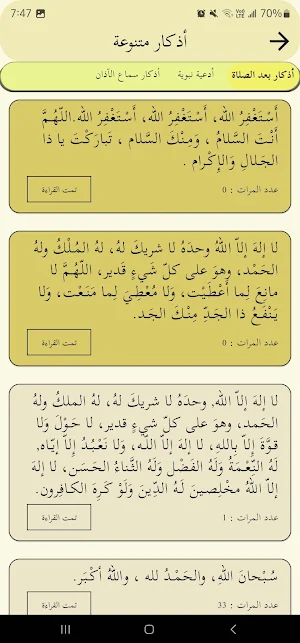 7:47
70%
أذكار متنوعة
أذكار بعد الصلاة
أدعية نبوية
أذكار سماع الآذان
أَسْتَغْفِرُ الله، أَسْتَغْفِرُ الله، أَسْتَغْفِرُ الله.اللّهُمَّ
أَنْتَ السَّلامُ ، وَمِنْكَ السَّلام ، تَبارَكْتَ يا ذا
الجَلالِ وَالإِكْرام .
عدد المرات : 0
تمت القراءة
لا إلهَ إلاّ اللهُ وحدَهُ لا شريكَ لهُ، لهُ المُلْكُ ولهُ
الحَمْد، وهوَ على كلّ شَيءٍ قَدير، اللّهُمَّ لا
مانِعَ لِما أَعْطَيْت، وَلا مُعْطِيَ لِما مَنَعْت، وَلا
يَنْفَعُ ذا الجَدِّ مِنْكَ الجَد.
عدد المرات : 0
تمت القراءة
لا إلهَ إلاّ اللهُ, وحدَهُ لا شريكَ لهُ، لهُ الملكُ ولهُ
الحَمد، وهوَ على كلّ شيءٍ قدير، لا حَوْلَ وَلا
قوَّةَ إِلاّ بِاللهِ، لا إلهَ إلاّ اللّـه، وَلا نَعْبُـدُ إِلاّ إيّـاه,
لَهُ النِّعْمَةُ وَلَهُ الفَضْل وَلَهُ الثَّناءُ الحَسَن، لا إلهَ
إلاّ اللهُ مخْلِصـينَ لَـهُ الدِّينَ وَلَوْ كَرِهَ الكـافِرون.
عدد المرات : 1
تمت القراءة
سُبْحَانَ اللهِ، والحَمْدُ لله ، واللهُ أكْبَر.
عدد المرات : 33
تمت القراءة